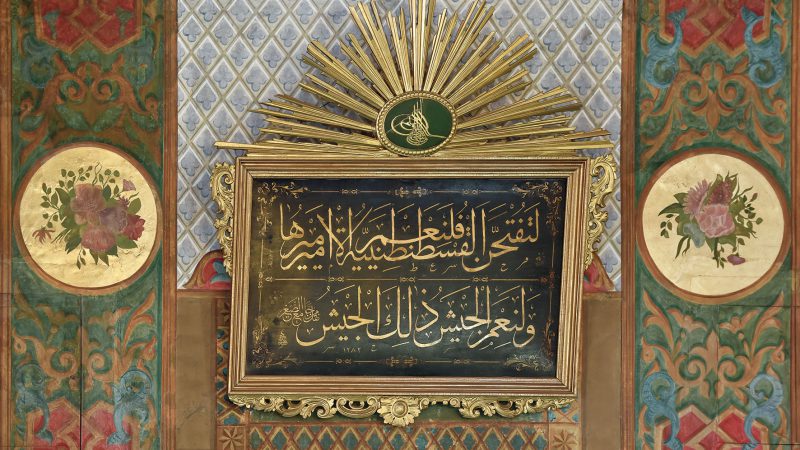 لتفتحن القسطنطينية فلنعم الامير اميرها
ولنعم الجيش ذلك الجيش
١٢٨٢